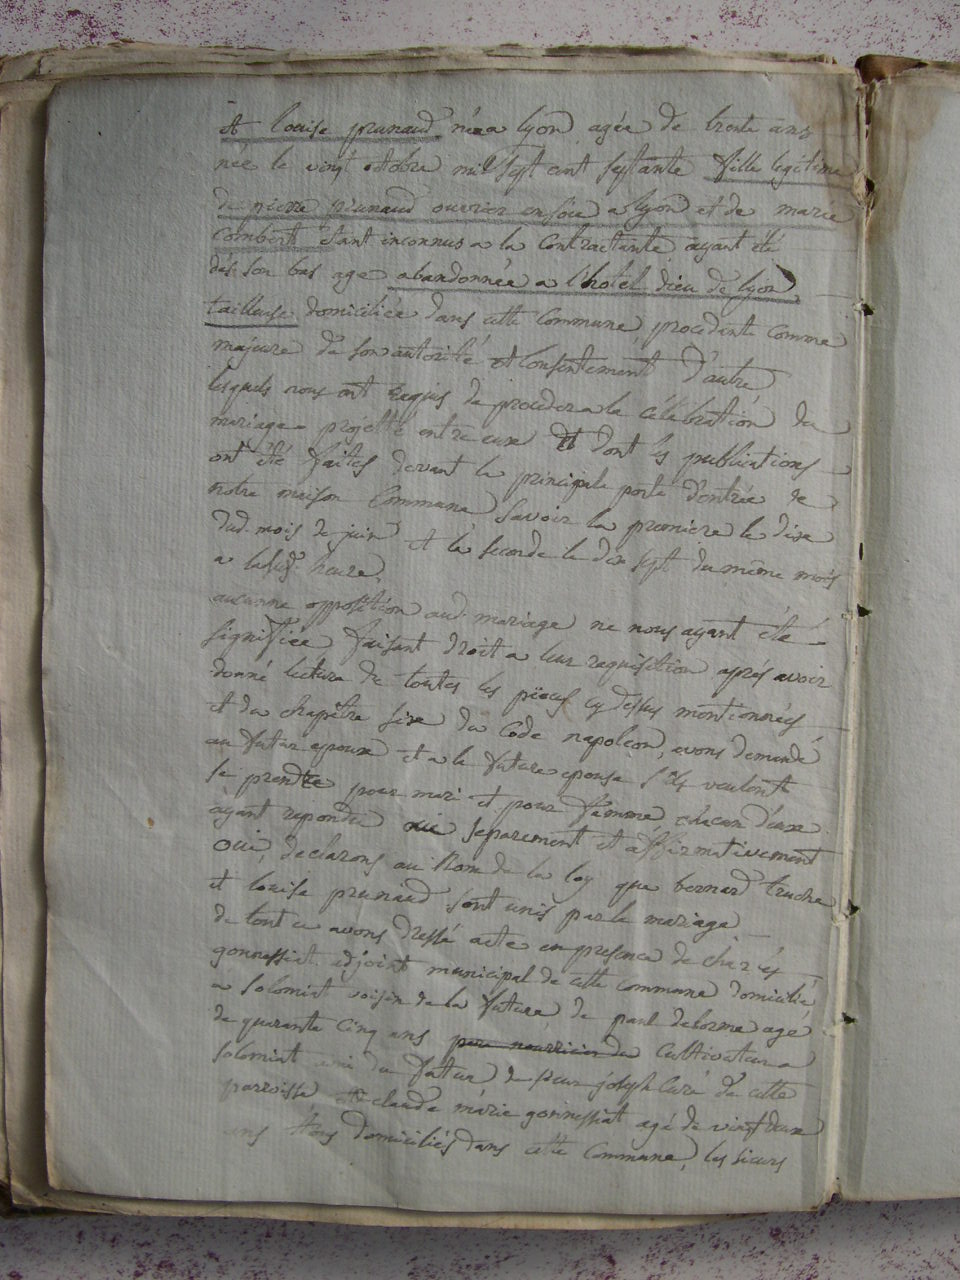 et louise prunaud née a lyon agée de trente ans
née le vingt octobre mil sept cent septante fille legitime
de pierre prunaud ouvrier en soie a lyon et de marie
combert etant inconnus a la contractante ayant été
dés son bas age abandonnée a l'hotel dieu de lyon
tailleuse domiciliée dans cette commune, procedante comme
majeure de son autorité et consentement d'autre
lesquels nous ont requis de proceder a la célébration du
mariage projetté entre eux et dont les publications
ont été faites devant la principale porte d'entrée de
notre maison commune savoir la premiere le dix
dud. mois de juin et la seconde le dix sept du même mois
a lad. heure,
aucunne opposition aud. mariage ne nous ayant été
signiffiée faisant droit a leur requisition aprés avoir
donné lecture de toutes les piéces cy dessus mentionnées
et du chapitre six du Code napoleon, avons demandé
au futur epoux et a la future epouse s'ils veulent
se prendre pour mari et pour femme chacun d'eux
ayant repondu separement et affirmativement
oui, declarons au nom de la loy que bernard truche
et louise prunaud sont unis par le mariage
de tout ce avons dressé acte en presence de
gonnessiat adjoint municipal de cette commune domicilié
a solomiat voisin de la future de paul delorme agé
de quarante cinq ans cultivateur a
solomiat ami du futur de sieur joseph curé de cette
parroisse claude marie gonnessiat agé de vingt deux
ans tous domiciliés dans cette commune, les sieurs